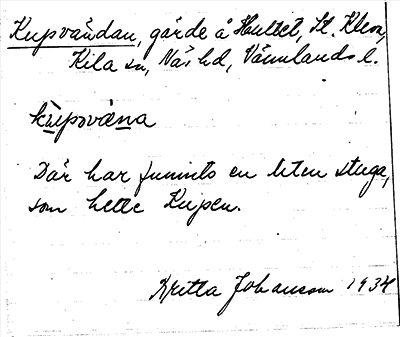 Kupvändan, gärde å Hultet, St. Kleva,
Kila sn, Näs hd, Värmlands l.
kupəväna
Där har funnits en liten stuga,
som hette Kupen.
Britta Johansson 1934